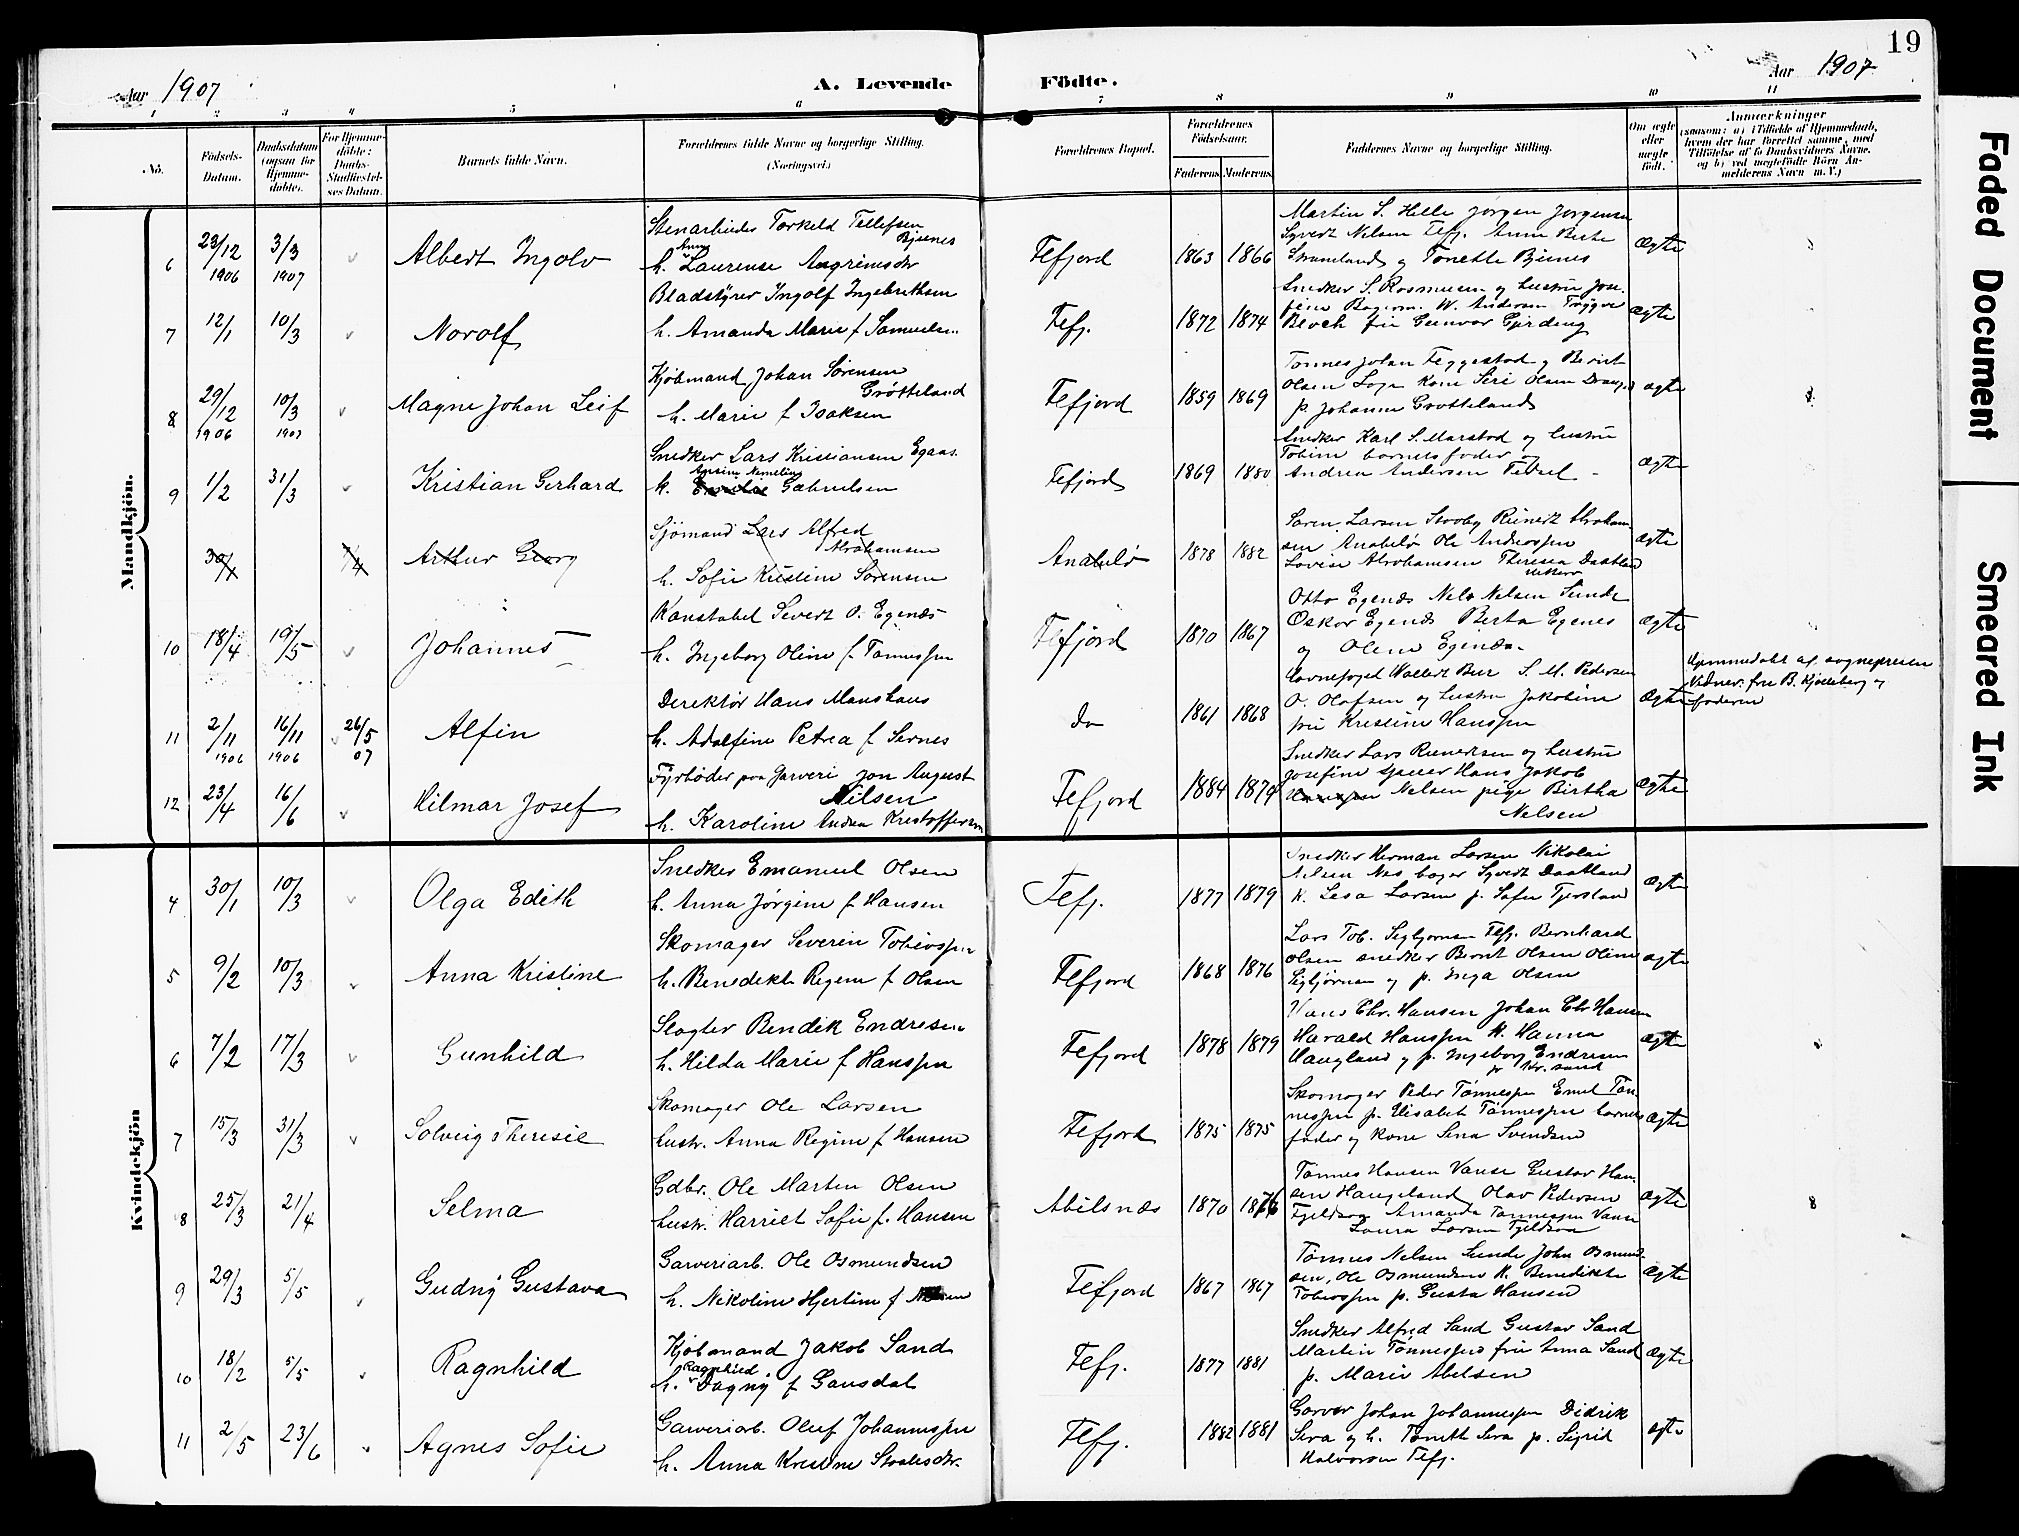 19
Aar 1907
A. Levende
Födte.
Aar 1907
1 2 3 4 5 6 7 8 9 10 11
No.
Födsels-Datum.
Daabsdatum (ogsaa for Hjemmedöbte).
For Hjemmedöbte: Daabs-Stadfæstelses Datum.
Barnets fulde Navn.
Forældrenes fulde Navne og borgerlige Stilling. (Næringsvei.)
Forældrenes Bopæl.
Forældrenes Födselsaar.
Faderens. Moderens.
Faddernes Navne og borgerlige Stilling.
Om ægte eller uægte födt.
Anmærkninger
(saasom: a) i Tilfælde af Hjemmedaab, hvem der har forrettet samme, med Tilföielse af to Daabsvidners Navne, og b) ved uægtefödte Börn Anmelderens Navn m. V.)
Mandkjön.
6 23/12 1906 3/3 1907 Albert Ingolv
Stenarbeider Torkeld Tellefsen
h. Anna Laurense Asgrimsdtr
Flefjord 1863 1866
Martin S. Helle Jørgen Jørgensen
Syvert Nelsen Flefj. Anna Berte
Strømland og Tonette
ægte
7 12/1 10/3 Norolf
Bladstyrer Ingolf Ingebrethsen
h. Amanda Marie f. Samuelsen
Flefj. 1872 1874
Snedker S. Rasmussen og hustru
W. Andersen Trygve
Bloch frk Gunvor
ægte
8 29/12 1906 10/3 1907 Magne Johan Leif
Kjøbmand Johan Sørensen
Grøtteland
h. Marie f Isaksen
Flefjord 1859 1869
Tonnes Johan Feggestad og Bernt
Olsen Loga Kone Siri Olsen
p. Johanne Grøtteland
ægte
9 1/2 31/3 Kristian Gerhard
Snedker Lars Kristiansen Egaas
h. Gabrielsen
Flefjord 1869 1880
Snedker Karl S. Marstad og hustru
Tobine barnets fader og
Andrea Andersen
ægte
Arthur Georg
Sjømand Lars Alfred
Abrahamsen
h. Sofie Kristine Sørensen
Anabelø 1878 1882
Søren Larsen
Anabelø Ole Andreassen
Lovise Abrahamsen Theresea
ægte
10 18/4 19/5 Johannes
Konstabel Severt O. Egenæs
h. Ingeborg Oline f. Tønnessen
Flefjord 1870 1867
Otto Egenæs Nels Nelsen Sunde
Oskar Egenæs Berta Egenes
og Olene Egenæs
ægte
11 2/11 1906 16/11 1906 26/5 07 Alfin
Direktør Hans Monshaus
h. Adolfine Petrea f Sernes
do 1861 1868
S. M. Pedersen
O. Olafsen og hustru Jakobine
fru Kristine Hanssen
ægte
Hjemmedøbt af sognepresten
Vidner: fru B. Kjølleberg og
faderen
12 23/4 16/6 Hilmar Josef
Fyrbøder paa Garveri Jon August
Nilsen
h. Karoline Andrea Kristoffersen
Flefjord 1884 1879
Snedker Lars og hustru
Josefine Hans Jakob
Nelsen pige Birtha
Nelsen
ægte
Kvindekjön
4 30/1 10/3 Olga Edith
Snedker Emanuel Olsen
h. Anna Jørgine f Hansen
Flefj. 1877 1879
Snedker Herman Larsen Nikolai
Nelsen Næs bager Syvert Daatland
K. Lesa Larsen p. Sofie
ægte
5 9/2 10/3 Anna Kristine
Skomager Severin Tobiassen
h. Benedikte Regine f Olsen
Flefjord 1868 1876
Lars Tob. Sigbjørnsen Flefj. Bernhard
Olsen snedker Bernt Olsen Oline
Sigbjørnsen og p. Inga Olsen
ægte
6 7/2 17/3 Gunhild
Slagter Bendik Endresen
h. Hilda Marie f Hanssen
Flefjord 1878 1879
Hans Chr. Hansen Johan Chr Hansen
Harald Hanssen K. Hanna
Haugland og p. Ingeborg Endresen
Kr.sand
ægte
7 15/3 31/3 Solveig Theresie
Skomager Ole Larsen
hustr. Anna Regine f Hansen
Flefjord 1875 1875
Skomager Peder Tønnessen Emil Tøn-
nessen p. Elisabet Tønnessen barnets
fader og kone Sena Svendsen
ægte
8 25/3 21/4 Selma
Gdbr. Ole Martin Olsen
hustr. Harriet Sofie f. Hansen
Abelsnæs 1870 1876
Tønnes Hansen Vanse Gustav Han-
sen Haugeland Olav Pedersen
Fjeldsaa Amanda Tønnessen Vanse
Laura Larsen Fjeldsaa
ægte 8
9 29/3 5/5 Gudny Gustava
Garveriarb. Ole Osmundsen
h. Nikoline Hjertine f
Flefjord 1867 1867
Tønnes Nelsen Sunde John Osmund-
sen, Ole Osmundsen K. Benedikte
Tobiassen p. Gusta Hansen
ægte
10 18/2 5/5 Ragnhild
Kjøbmand Jakob Sand
h. Ragnhild Dagny f Gausdal
Flefj. 1877 1881
Snedker Alfred Sand Gustav Sand
Martin Tønnessen fru Anna Sand
p. Marie Abelsen
ægte
11 2/5 23/6 Agnes Sofie
Garveriarb. Oluf Johannessen
h. Anna Kristine
Flefj. 1882 1881
Garver Johan Johannessen Didrik
Sira og h. Tomith Sira p. Sigrid
Halvorsen Flefj.
ægte
Faded Document
Smeared Ink